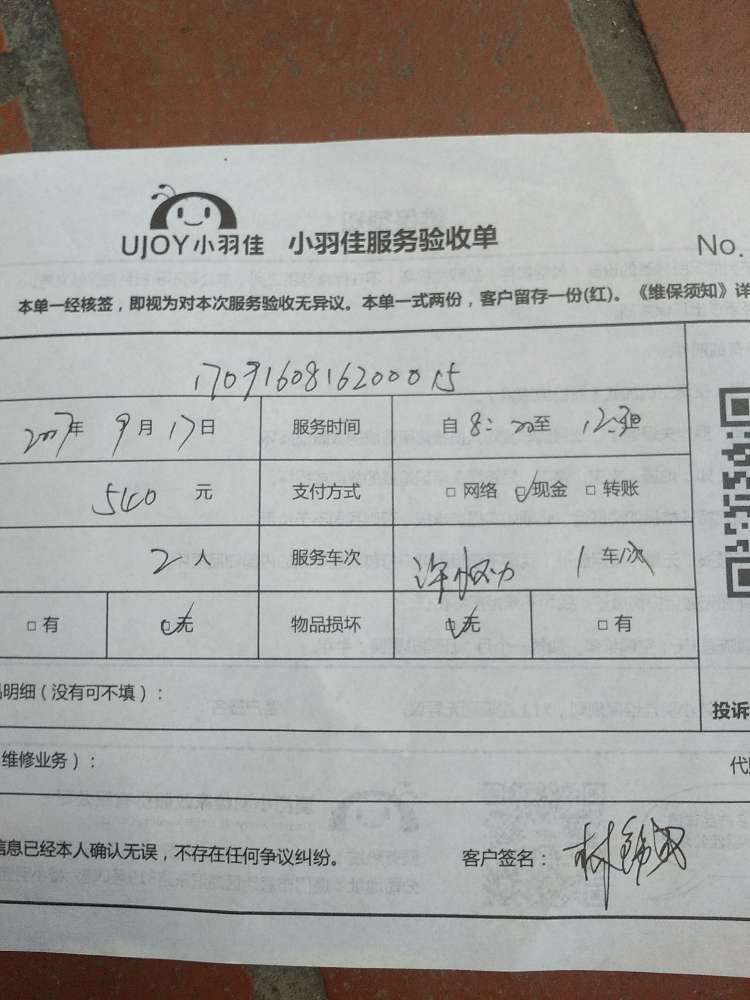 UJOY小羽佳 小羽佳服务验收单
No.
本单一经核签，即视为对本次服务验收无异议。本单一式两份，客户留存一份(红)。《维保须知》详
1709160816200015
2017年 9月 17日 服务时间 自 8:20至 12:30
540 元 支付方式 □ 网络 ☑现金 □ 转账
2人 服务车次 1 车/次
□ 有 ☑无 物品损坏 ☑无 □ 有
品明细（没有可不填）：
投诉
维修业务）：
代
信息已经本人确认无误，不存在任何争议纠纷。 客户签名：